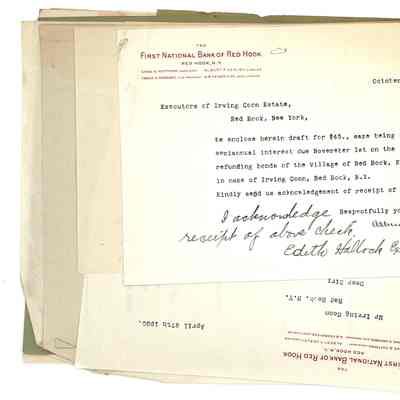 THE
FIRST NATIONAL BANK OF RED HOOK
RED HOOK, N.Y.
Executors of Irving Coon Estate,
Red Hook, New York,
We enclose herein draft for $65., same being
semiannual interest due November 1st on the
refunding bonds of the Village of Red Hook, N
in name of Irving Coon, Red Hook, N.Y.
Kindly send us acknowledgement of receipt of
Respectfully yo
I acknowledge
receipt of above check.
Edith Hallock Ex
THE
FIRST NATIONAL BANK OF RED HOOK
RED HOOK, N.Y.
April 27th 1930.
Mr Irving Coon
Red Hook, N.Y.
Dear Sir: